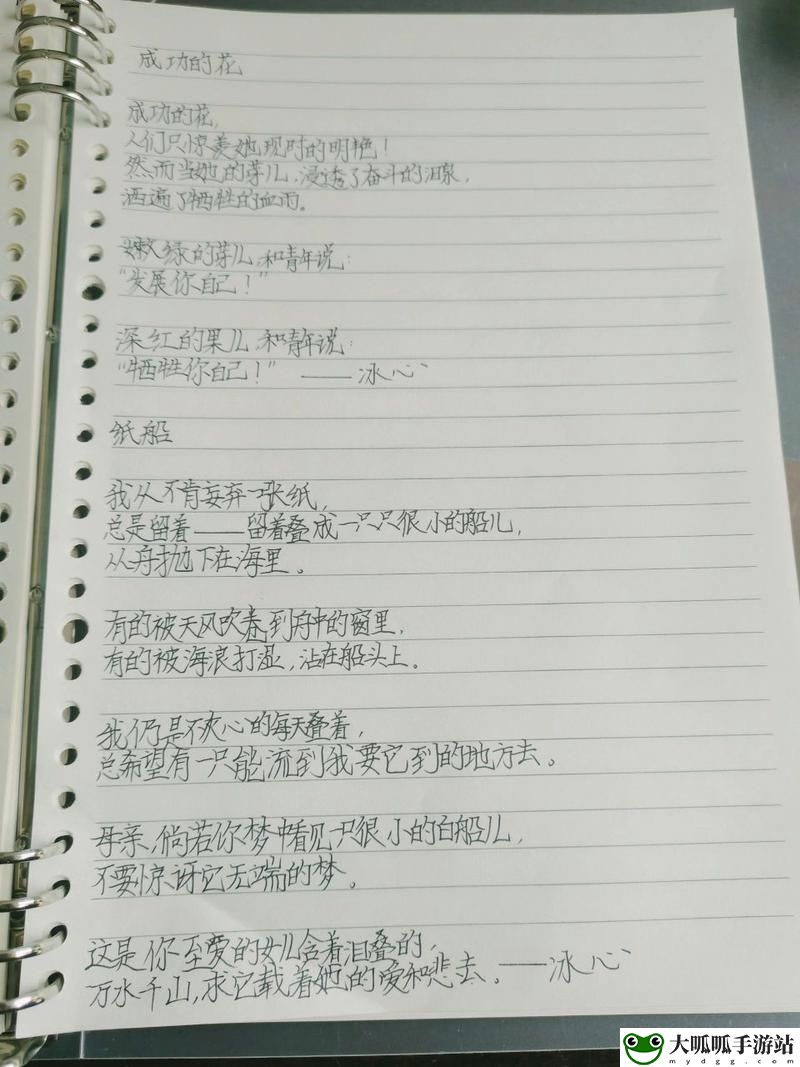 成功的花
成功的花，
人们只惊羡她现时的明艳！
然而当她的芽儿，浸透了奋斗的泪泉，
洒遍了牺牲的血雨。
嫩绿的芽儿，和青年说：
“发展你自己！”
深红的果儿，和青年说：
“牺牲你自己！” ——冰心
纸船
我从不肯妄弃一张纸，
总是留着——留着叠成一只只很小的船儿，
从舟抛下在海里。
有的被天风吹卷到舟中的窗里，
有的被海浪打湿，沾在船头上。
我仍是不灰心的每天叠着，
总希望有一只能流到我要它到的地方去。
母亲，倘若你梦中看见一只很小的白船儿，
不要惊讶它无端的梦。
这是你至爱的女儿含着泪叠的，
万水千山，求它载着她的爱和悲去。——冰心
大呱呱手游站
mydgg.com